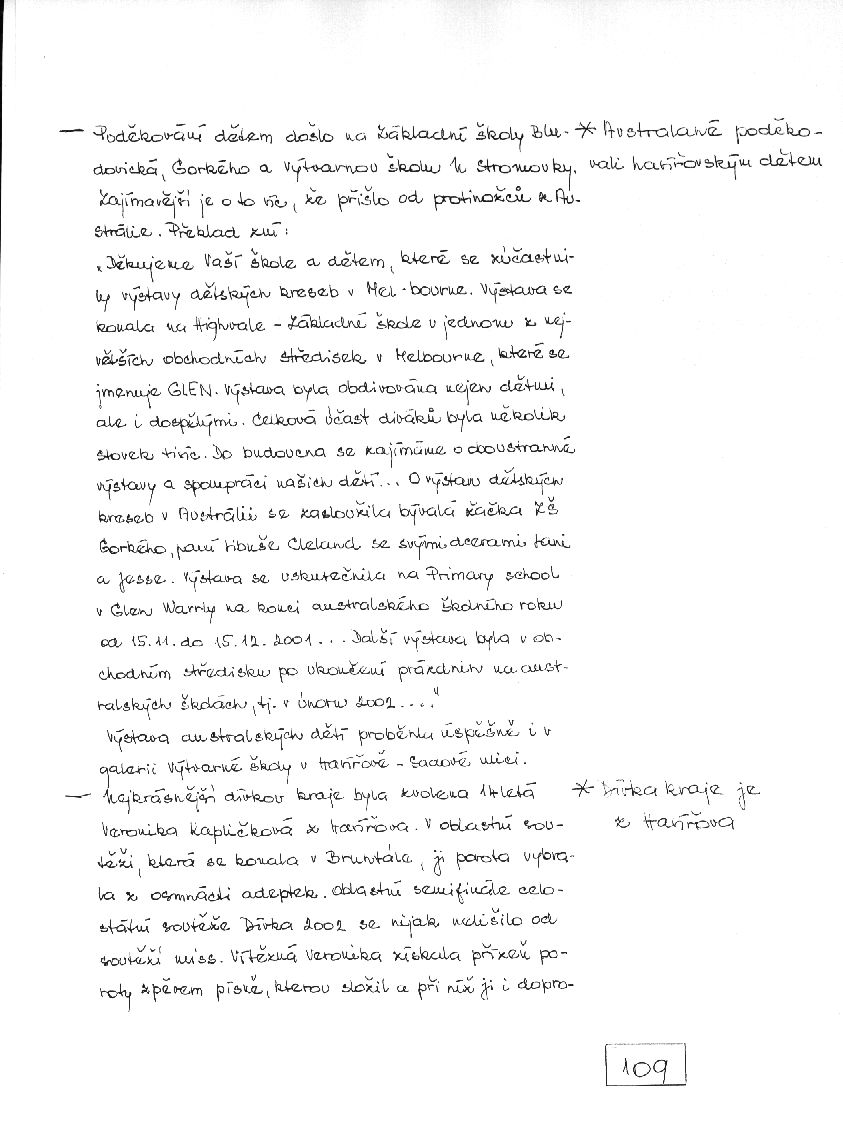 — Poděkování dětem došlo na Základní školy Blu- * Australané poděko-
dovická, Gorkého a Výtvarnou školu U Stromovky. vali havířovským dětem
Zajímavější je o to víc, že přišlo od protinožců z Au-
strálie. Překlad zní:
"Děkujeme Vaší škole a dětem, které se zúčastni-
ly výstavy dětských kreseb v Mel-bourne. Výstava se
konala na Highvale - Základné škole v jednom z nej-
větších obchodních středisek v Melbourne, které se
jmenuje GLEN. Výstava byla obdivována nejen dětmi,
ale i dospělými. Celková účast diváků byla několik
stovek tisíc. Do budoucna se zajímáme o oboustranné
výstavy a spolupráci našich dětí... O výstavu dětských
kreseb v Austrálii se zasloužila bývalá žačka ZŠ
Gorkého, paní Libuše Cleland se svými dcerami Tani
a Jesse. Výstava se uskutečnila na Primary school
v Glen Warrly na konci australského školního roku
od 15.11. do 15.12. 2001... Další výstava byla v ob-
chodním středisku po ukončení prázdnin na aust-
ralských školách, tj. v únoru 2002...."
Výstava australských dětí proběhla úspěšně i v
galerii Výtvarné školy v Havířově - Sadové ulici.
— Nejkrásnější dívkou kraje byla zvolena 14letá * Dívka kraje je
Veronika Kapličková z Havířova. V oblastní sou- z Havířova
těži, která se konala v Bruntále, ji porota vybra-
la z osmnácti adeptek. Oblastní semifinále celo-
státní soutěže Dívka 2002 se nijak nelišilo od
soutěží miss. Vítězná Veronika získala přízeň po-
roty zpěvem písně, kterou složil a při níž ji i dopro-
109